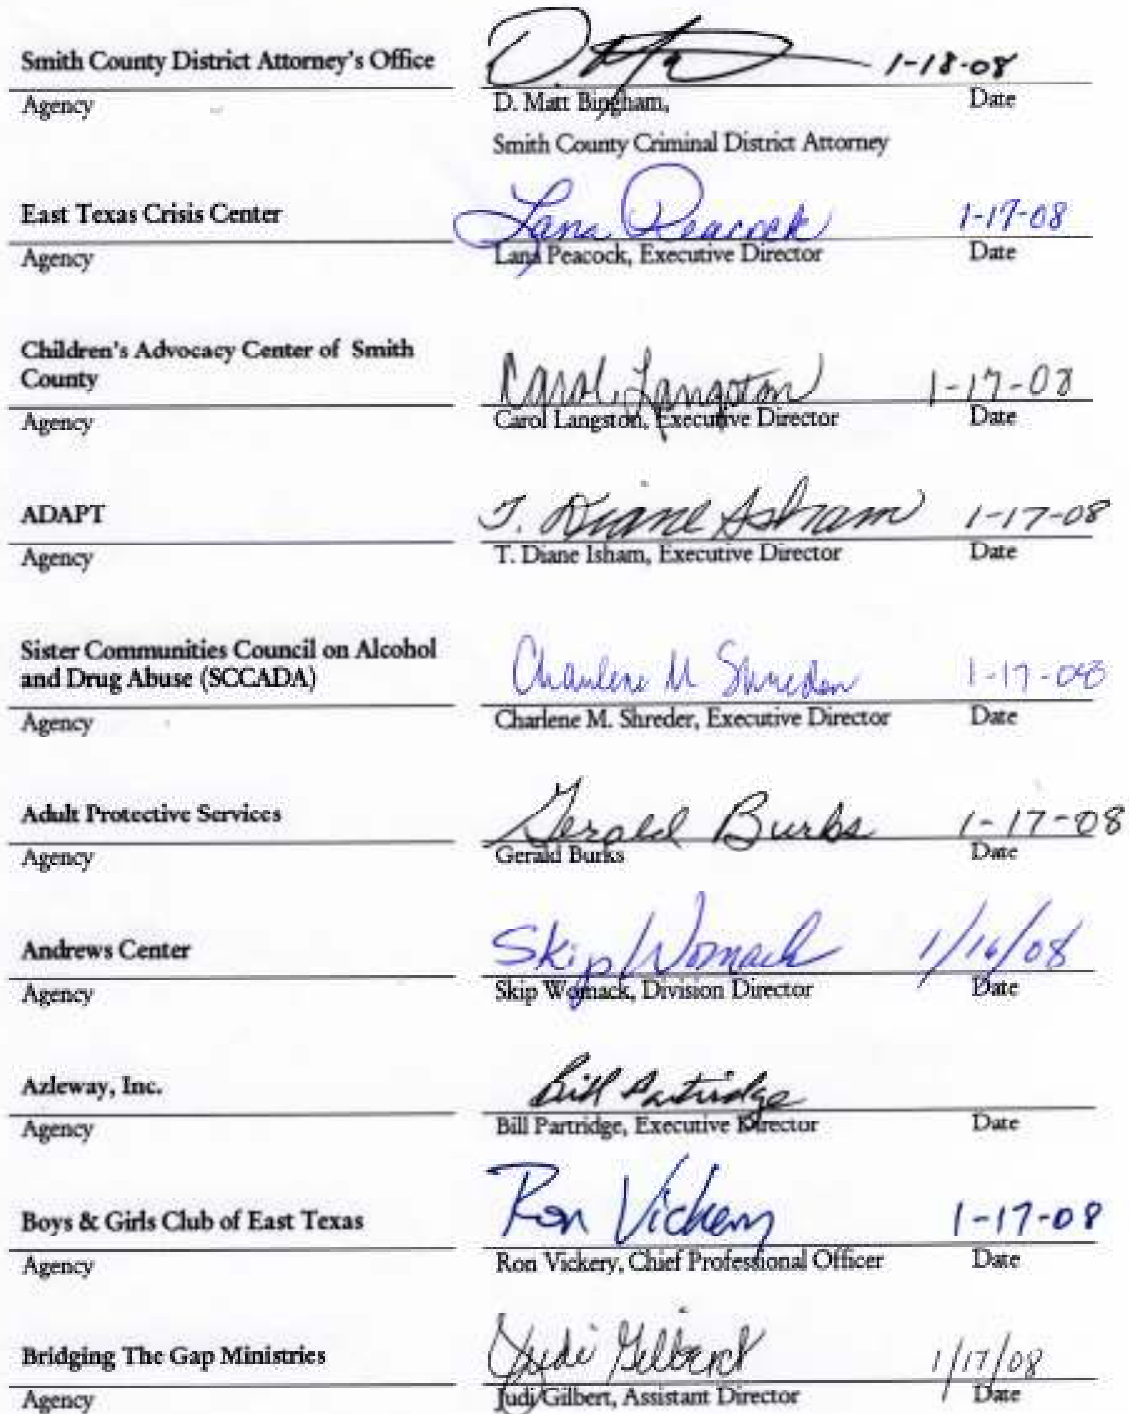 Smith County District Attorney's Office D. Mat 1-18-08
Agency D. Matt Bingham, Date
Smith County Criminal District Attorney
East Texas Crisis Center Lana Peacock 1-17-08
Agency Lana Peacock, Executive Director Date
Children's Advocacy Center of Smith
County Carol Langston 1-17-08
Agency Carol Langston, Executive Director Date
ADAPT T. Diane Isham 1-17-08
Agency T. Diane Isham, Executive Director Date
Sister Communities Council on Alcohol
and Drug Abuse (SCCADA) Charlene M Shreder 1-17-08
Agency Charlene M. Shreder, Executive Director Date
Adult Protective Services Gerald Burks 1-17-08
Agency Gerald Burks Date
Andrews Center Skip Womack 1/16/08
Agency Skip Womack, Division Director Date
Azleway, Inc. Bill Partridge
Agency Bill Partridge, Executive Director Date
Boys & Girls Club of East Texas Ron Vickery 1-17-08
Agency Ron Vickery, Chief Professional Officer Date
Bridging The Gap Ministries Judi Gilbert 1/17/08
Agency Judi Gilbert, Assistant Director Date